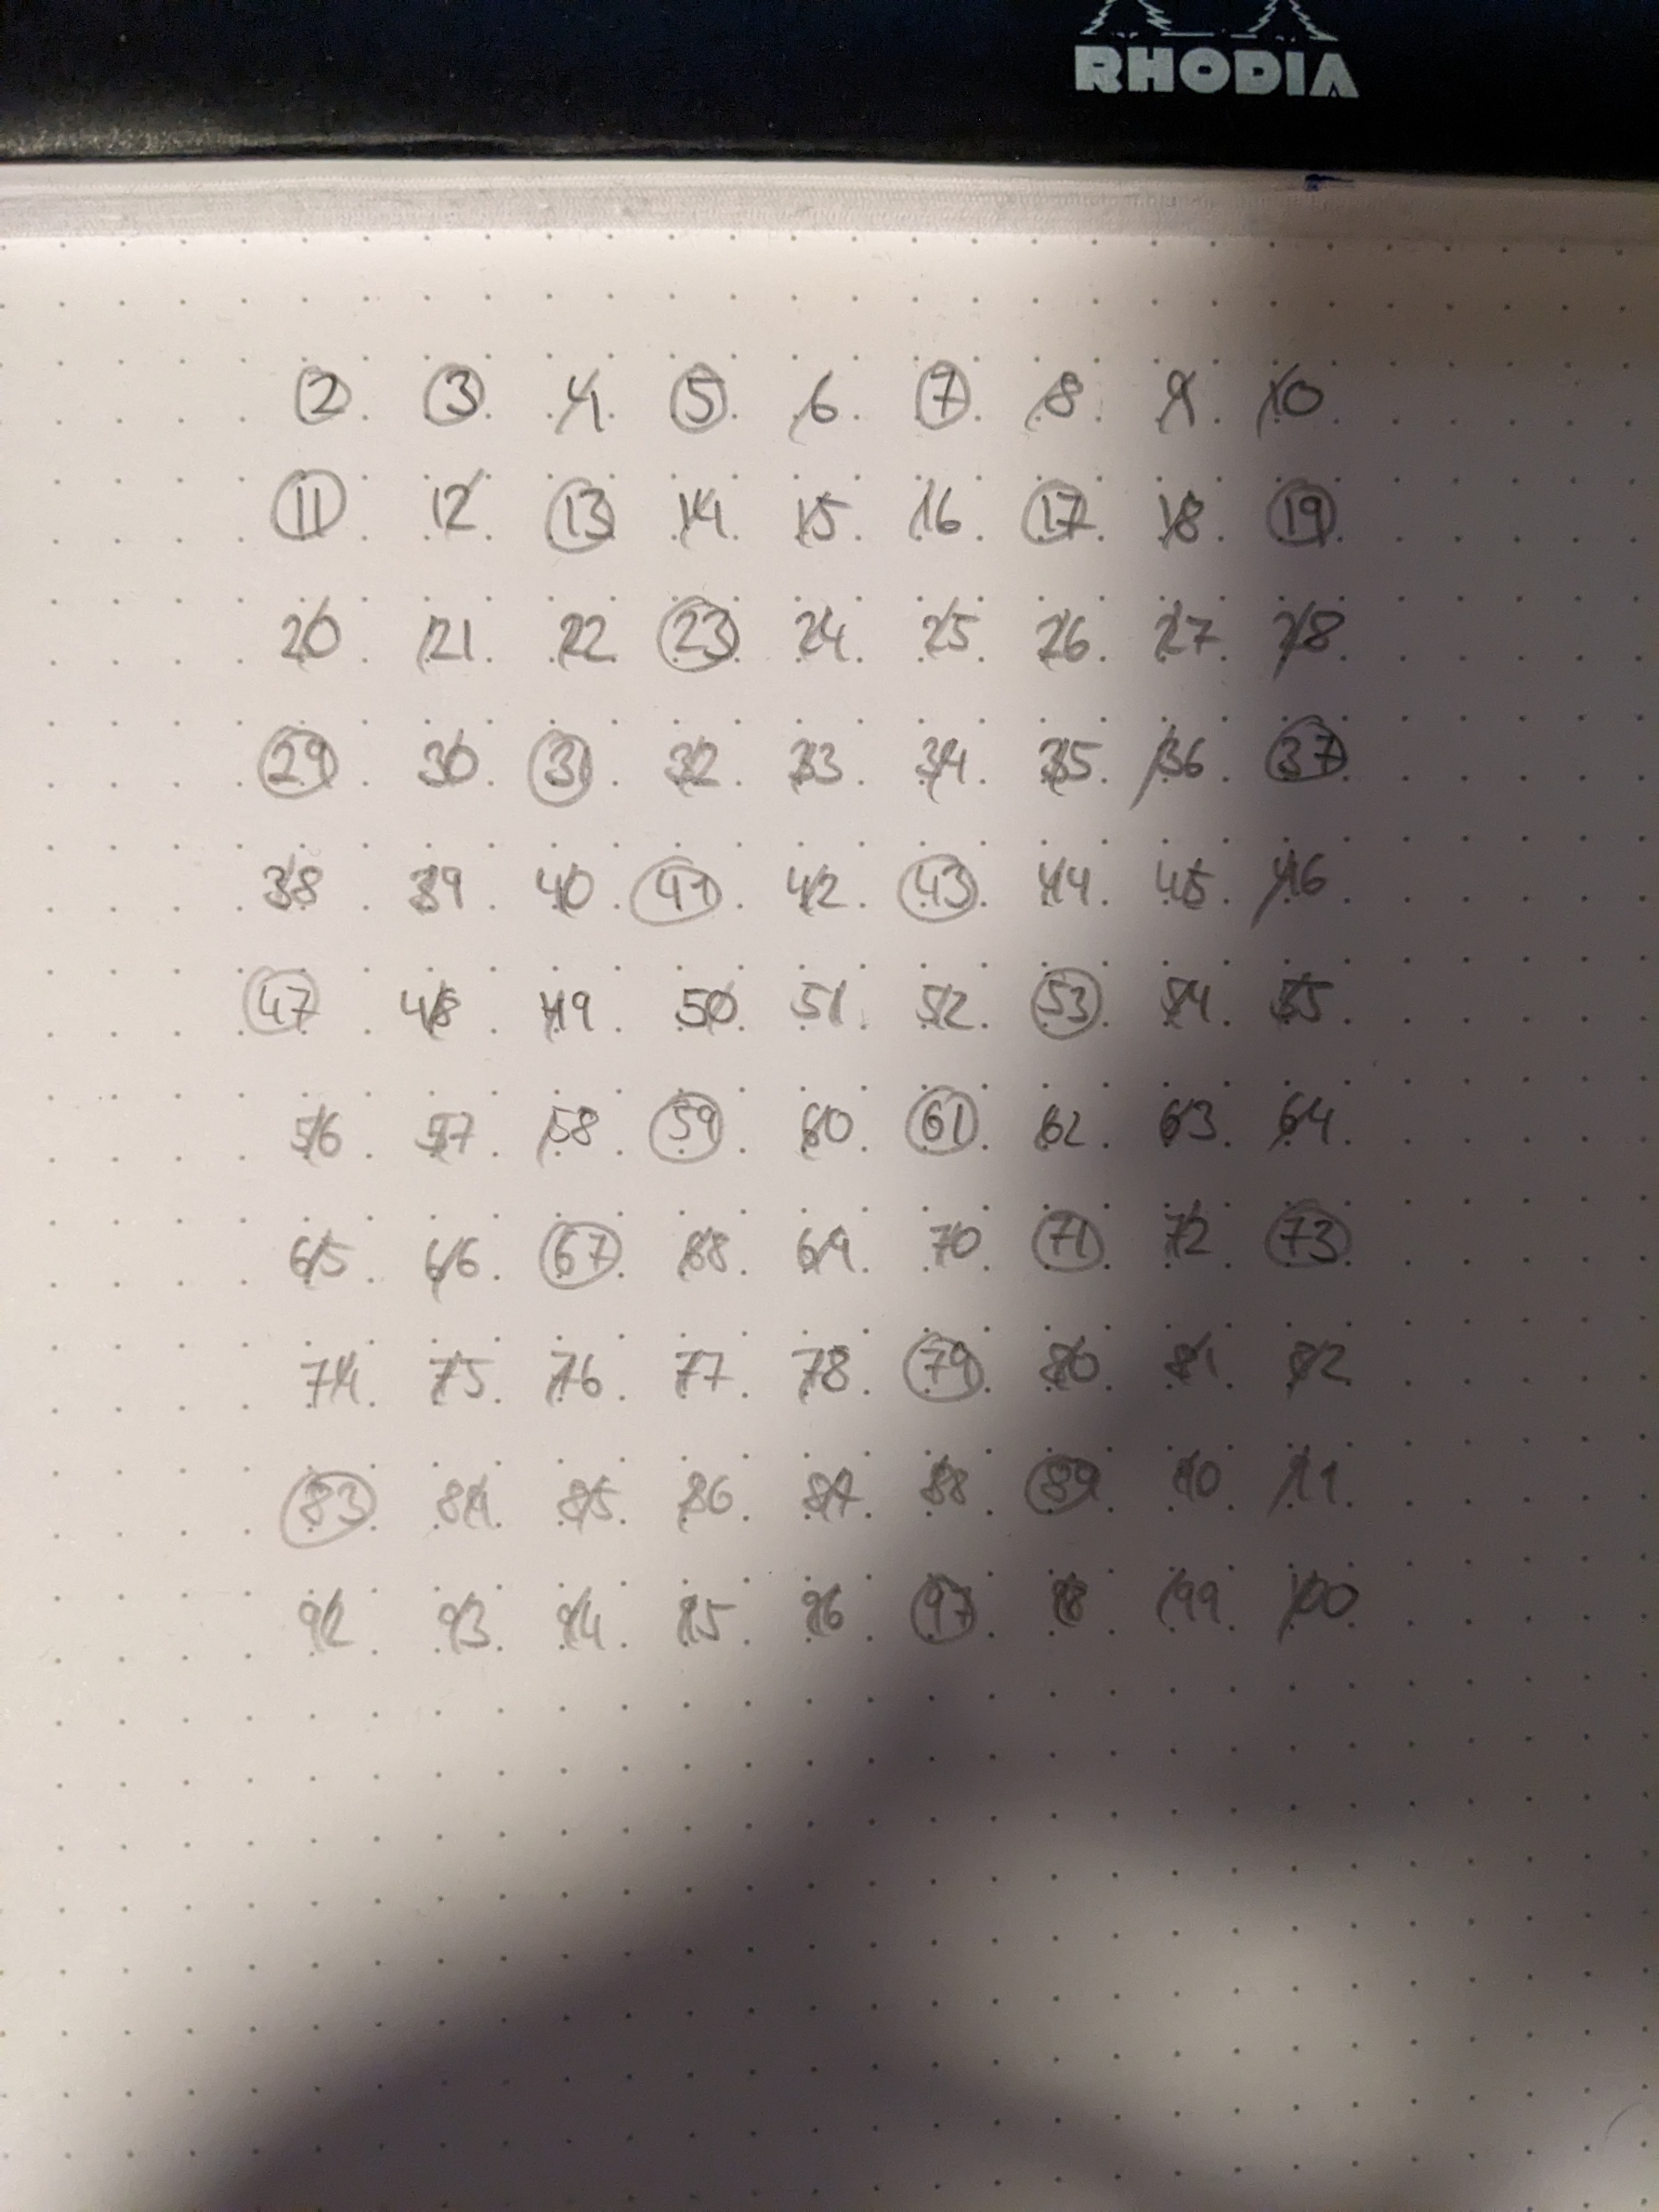 RHODIA
2 3 4 5 6 7 8 9 10
11 12 13 14 15 16 17 18 19
20 21 22 23 24 25 26 27 28
29 30 31 32 33 34 35 36 37
38 39 40 41 42 43 44 45 46
47 48 49 50 51 52 53 54 55
56 57 58 59 60 61 62 63 64
65 66 67 68 69 70 71 72 73
74 75 76 77 78 79 80 81 82
83 84 85 86 87 88 89 90 91
92 93 94 95 96 97 98 99 100